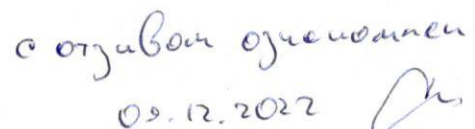 с отзывом ознакомлен
09.12.2022